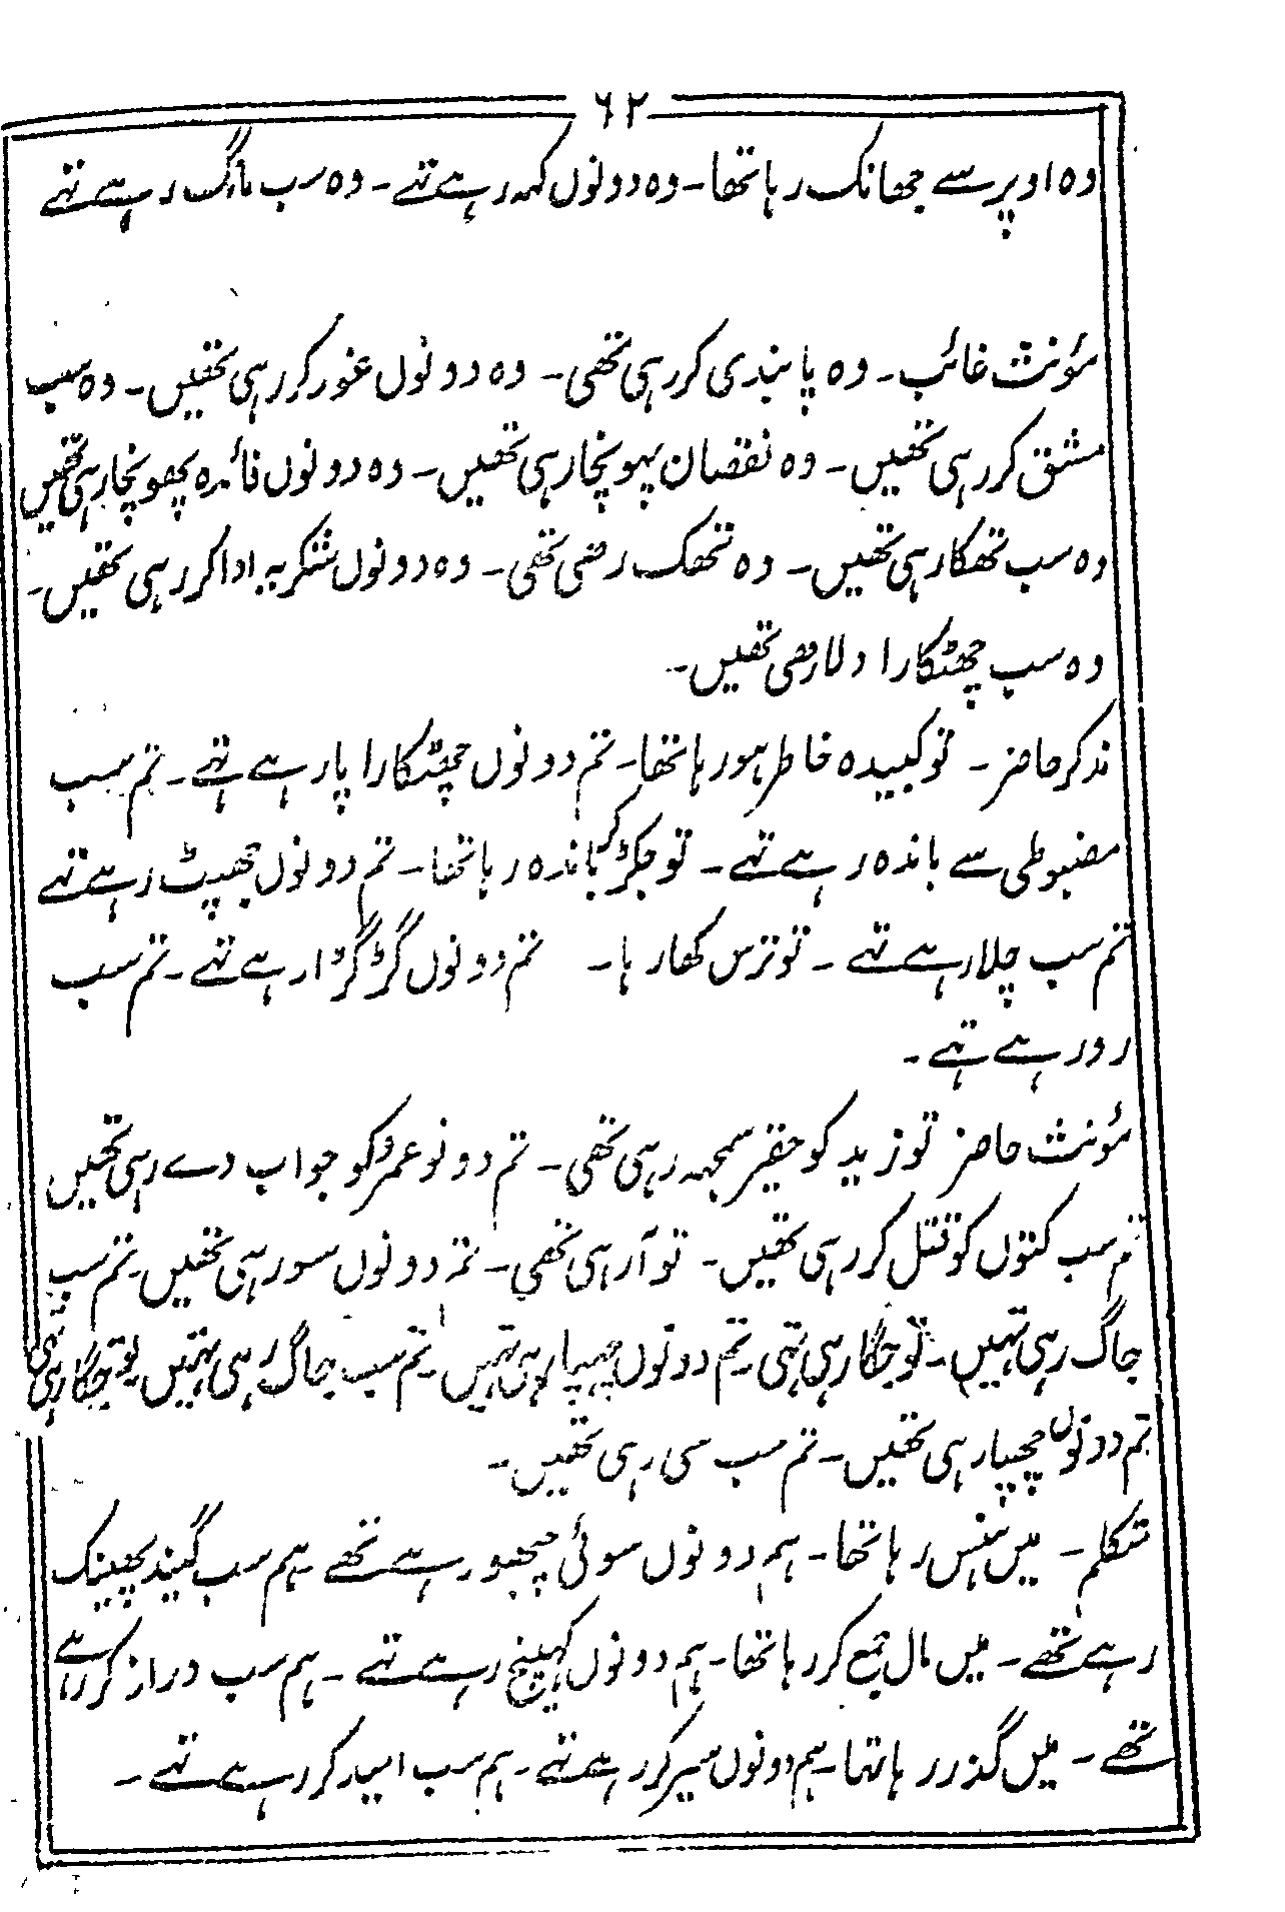 ۶۲
وہ اوپر سے جھانک رہا تھا۔ وہ دونوں کہہ رہے تہے۔ وہ سب مانگ رہے تہے
مؤنث غائب۔ وہ پابندی کر رہی تھی۔ وہ دونوں غور کر رہی تھیں۔ وہ سب
مشق کر رہی تھیں۔ وہ نقصان پہونچا رہی تھیں۔ وہ دونوں فائدہ پھونچا رہی تھیں
وہ سب تھکا رہی تھیں۔ وہ تھک رھی تھی۔ وہ دونوں شکریہ ادا کر رہی تھیں۔
وہ سب چھٹکارا دلا رھی تھیں۔
مذکر حاضر۔ تو کبیدہ خاطر ہو رہا تھا۔ تم دونوں چھٹکارا پا رہے تہے۔ تم سب
مضبوطی سے باندہ رہے تہے۔ تو جکڑ کر باندہ رہا تھا۔ تم دونوں جھپٹ رہے تہے
تم سب چلا رہے تہے۔ تو ترس کھا رہا۔ تم دونوں گڑگڑا رہے تہے۔ تم سب
رو رہے تہے۔
مؤنث حاضر تو زید کو حقیر سمجہہ رہی تھی۔ تم دونو عمرو کو جواب دے رہی تھیں
تم سب کتوں کو قتل کر رہی تھیں۔ تو آ رہی تھی۔ تم دونوں سو رہی تھیں۔ تم سب
جاگ رہی تہیں۔ تو جگا رہی تہی۔ تم دونوں چھپا رہی تہیں۔ تم سب جاگ رہی تہیں۔ تو جگا رہی تہی
تم دونوں چھپا رہی تھیں۔ تم سب سی رہی تھیں۔
متکلم۔ میں ہنس رہا تھا۔ ہم دونوں سوئی چبھو رہے تھے۔ ہم سب گیند پھینک
رہے تھے۔ میں مال جمع کر رہا تھا۔ ہم دونوں کہینچ رہے تہے۔ ہم سب دراز کر رہے
تھے۔ میں گذر رہا تہا۔ ہم دونوں سیر کر رہے تہے۔ ہم سب امید کر رہے تہے۔